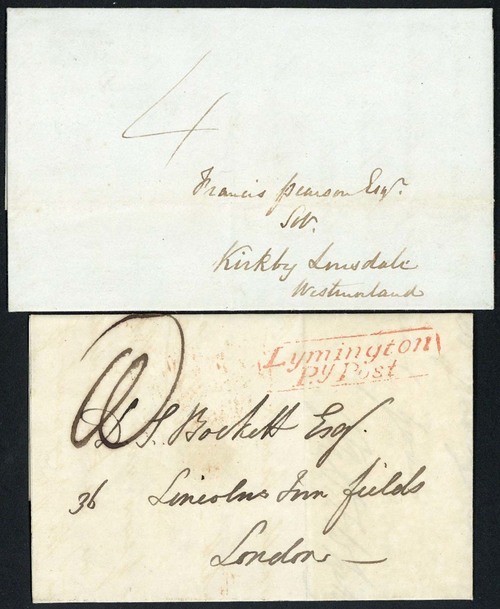 4
Francis Pearson Esqr.
Solr.
Kirkby Lonsdale
Westmorland
Lymington
Py Post
S. Bockett Esqr.
36 Lincolns Inn fields
London